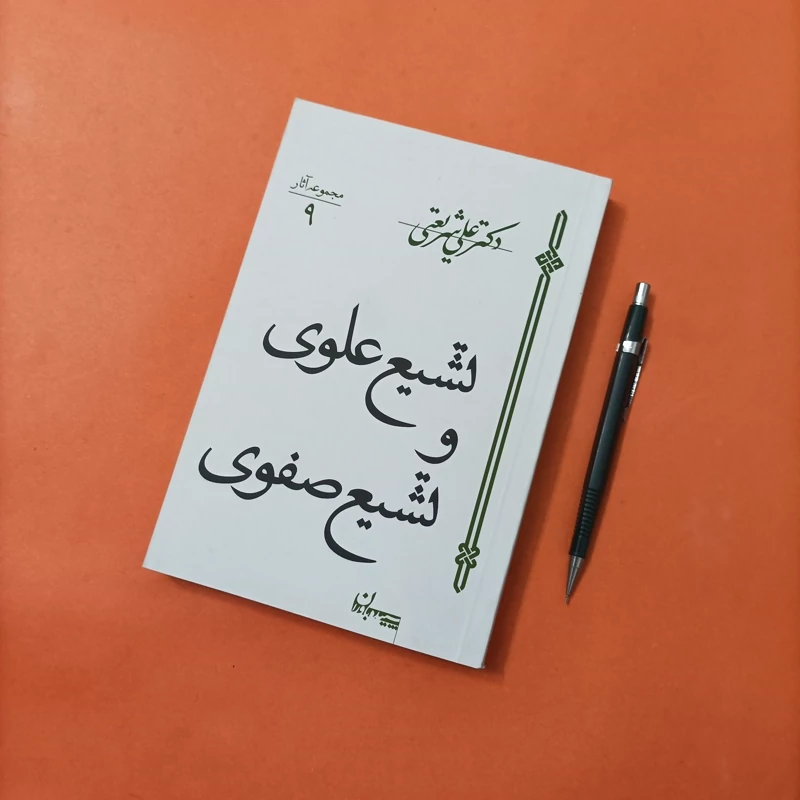 مجموعه آثار
۹
دکتر علی شریعتی
تشیع علوی
و
تشیع صفوی